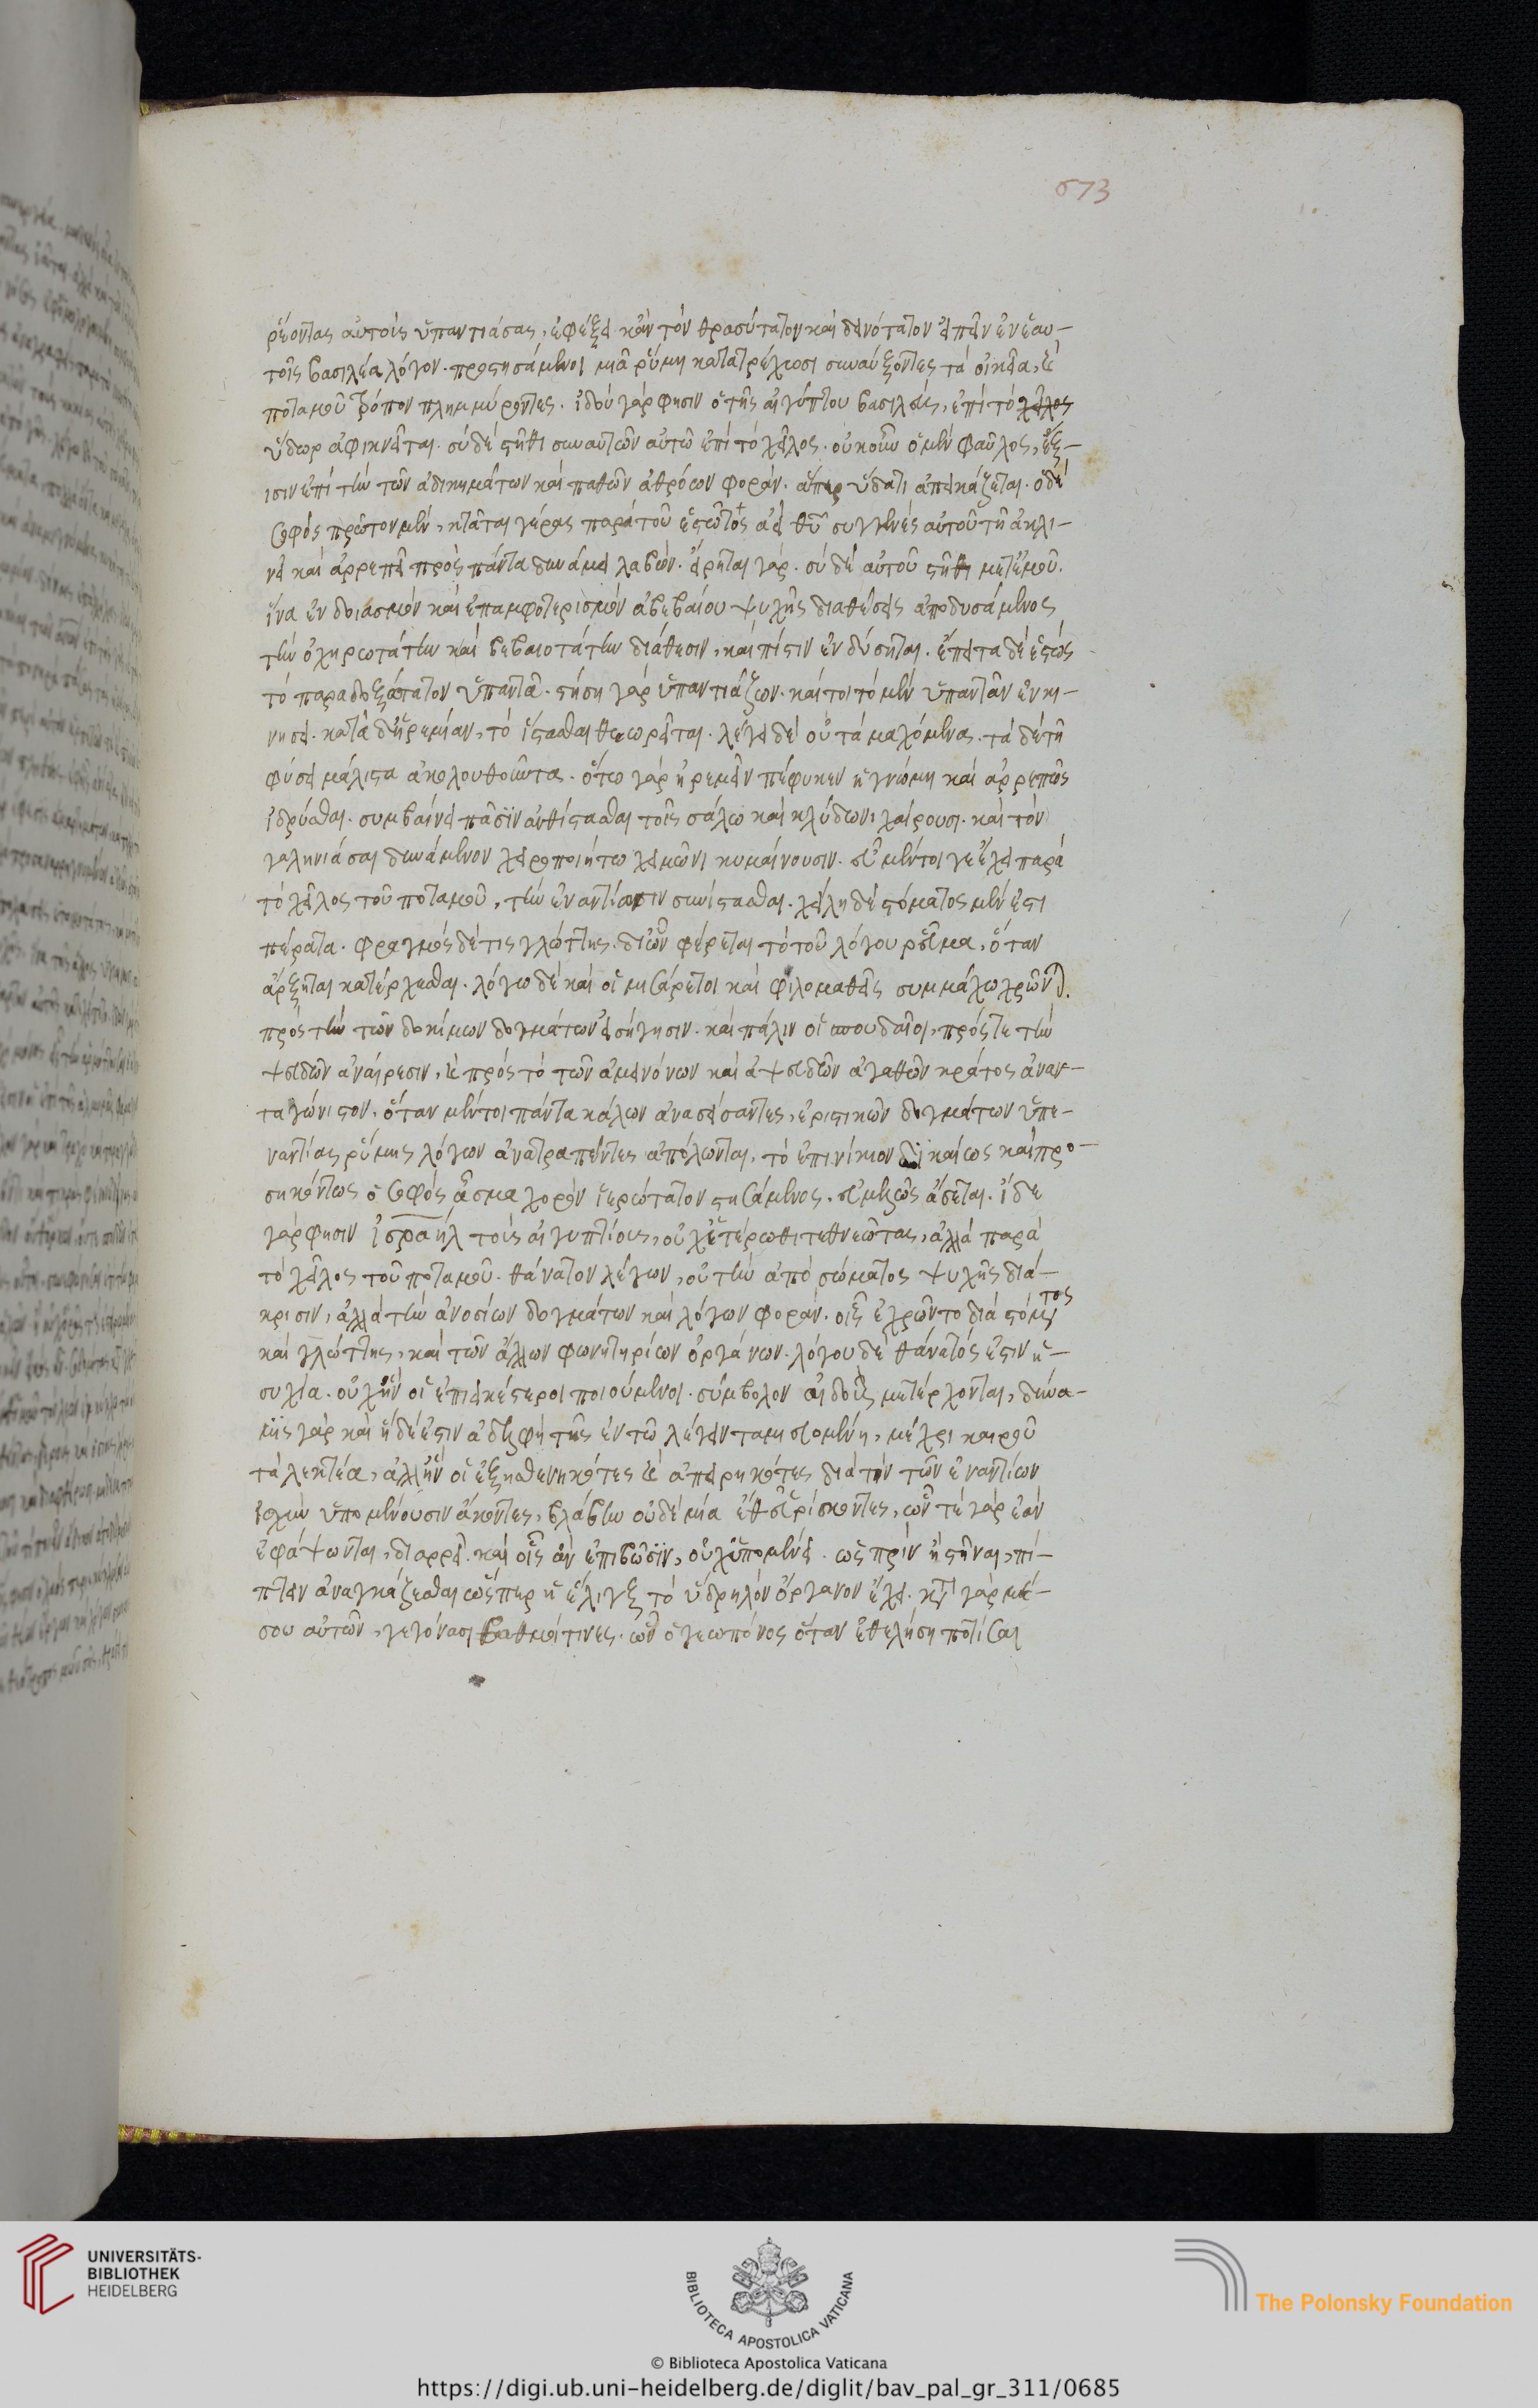 673
ῥέοντας αὐτοῖς ὑπαντιάσας, ἐφέξει κἂν τὸν θρασύτατον καὶ δεινότατον εἰπεῖν ἐν ἑαυ-
τοῖς βασιλέα λόγον. προστησάμενοι μιᾷ ῥύμῃ κατατρέχωσι συναύξοντες τὰ οἰκεῖα, καὶ
ποταμοῦ τρόπον πλημμύροντες. ἰδοὺ γάρ φησιν ὁ τῆς αἰγύπτου βασιλεὺς, ἐπὶ τὸ χεῖλος
ὕδωρ ἀφικνεῖται. σὺ δὲ στῆθι συναντῶν αὐτῷ ἐπὶ τὸ χεῖλος. οὐκοῦν ὁ μὲν φαῦλος, ἔξ-
ισιν ἐπὶ τὴν τῶν ἀδικημάτων καὶ παθῶν ἀθρόων φοράν. ἅπερ ὕδατι ἀπεικάζεται. ὁ δὲ
σοφὸς πρῶτον μὲν, κτᾶται γέρας παρὰ τοῦ ἑστῶτος ἀεὶ θῡ συγγενὲς αὐτοῦ τῇ ἀκλι-
νεῖ καὶ ἀρρεπεῖ πρὸς πάντα δυνάμει λαβών. εἴρηται γάρ. σὺ δὲ αὐτοῦ στῆθι μετ' ἐμοῦ.
ἵνα ἐνδοιασμὸν καὶ ἐπαμφοτερισμὸν ἀβεβαίου ψυχῆς διαθέσεις ἀποδυσάμενος
τὴν ὀχυρωτάτην καὶ βεβαιοτάτην διάθεσιν, καὶ πίστιν ἐνδύσηται. ἔπειτα δὲ ἑστὼς
τὸ παραδοξότατον ὑπαντᾷ. στήσῃ γὰρ ὑπαντιάζων. καίτοι τὸ μὲν ὑπαντᾶν ἐν κι-
νήσει. κατὰ δ' ἠρεμίαν, τὸ ἵστασθαι θεωρεῖται. λέγει δὲ οὐ τὰ μαχόμενας. τὰ δὲ τῇ
φύσει μάλιστα ἀκολουθοῦντας. ὅτῳ γὰρ ἠρεμεῖν πέφυκεν ἡ γνώμη καὶ ἀρρεπῶς
ἱδρύσθαι. συμβαίνει πᾶσϊν ἀνθίστασθαι τοῖς σάλῳ καὶ κλύδωνι χαίρουσι. καὶ τὸν
γαληνιάσαι δυνάμενον χειροποιήτῳ χειμῶνι κυμαίνουσιν. εὖ μέντοι γε ἔχει παρὰ
τὸ χεῖλος τοῦ ποταμοῦ, τὴν ἐναντίωσιν συνίστασθαι. χείλη δὲ στόματος μέν ἐστι
πέρατα. φραγμὸς δέ τις γλώττης. δι' ὧν φέρεται τὸ τοῦ λόγου ῥεῦμα, ὅταν
ἄρξηται κατέρχεσθαι. λόγῳ δὲ καὶ οἱ μισάρετοι καὶ φιλομαθεῖς συμμάχῳ χρῶντ(αι).
πρὸς τὴν τῶν δοκίμων δογμάτων εἰσήγησιν. καὶ πάλιν οἱ σπουδαῖοι, πρός τε τὴν
ψευδῶν ἀναίρεσιν, καὶ πρὸς τὸ τῶν ἀμεινόνων καὶ ἀψευδῶν ἀγαθῶν κράτος ἀναν-
ταγώνιστον. ὅταν μέντοι πάντα κάλων ἀνασείσαντες, ἐριστικῶν δογμάτων ὑπε-
ναντίας ῥύμης λόγων ἀνατραπέντες ἀπόλωνται, τὸ ἐπινίκιον δικαίως καὶ προ-
σηκόντως ὁ σοφὸς ᾆσμα χορὸν ἱερώτατον στησάμενος, εὐμελῶς ᾄσεται. ἴδε
γάρ φησιν ἰσραὴλ τοὺς αἰγυπτίους, οὐχ ἑτέρωθι τεθνεῶτας, ἀλλὰ παρὰ
τὸ χεῖλος τοῦ ποταμοῦ. θάνατον λέγων, οὐ τὴν ἀπὸ σώματος ψυχῆς διά-
κρισιν, ἀλλὰ τὴν ἀνοσίων δογμάτων καὶ λόγων φοράν. οἷς ἐχρῶντο διὰ στόματος
καὶ γλώττης, καὶ τῶν ἄλλων φωνητηρίων ὀργάνων. λόγου δὲ θάνατός ἐστιν ἡ-
συχία. οὐχ ἣν οἱ ἐπιεικέστεροι ποιούμενοι. σύμβολον αἰδοῦς μετέρχονται, δύνα-
μϊς γὰρ καὶ ἥδε ἐστὶν ἀδελφὴ τῆς ἐν τῷ λέγειν ταμιευομένη, μέχρι καιροῦ
τὰ λεκτέα, ἀλλ' ἣν οἱ ἐξησθενηκότες καὶ ἀπειρηκότες διὰ τὴν τῶν ἐναντίων
ἰσχὺν ὑπομένουσιν ἄκοντες, λαβὴν οὐδεμία ἔθ' εὑρίσκοντες, ὧν τε γὰρ ἐὰν
ἐφάψωνται, διαρρεῖ. καὶ οἷς ἂν ἐπιβῶσϊν, οὐχ ὑπομένει. ὡς πρὶν ἢ στῆναι, πί-
πτειν ἀναγκάζεσθαι ὥσπερ ἡ ἕλιγξ τὸ ὑδρηλὸν ὄργανον ἔχει. κατὰ γὰρ μέ-
σου αὐτῶν, γεγόνασι βαθμοί τινες. ὧν ὁ γεωπόνος ὅταν ἐθελήσῃ ποτίσαι
UNIVERSITÄTS-
BIBLIOTHEK
HEIDELBERG
BIBLIOTECA APOSTOLICA VATICANA
The Polonsky Foundation
© Biblioteca Apostolica Vaticana
https://digi.ub.uni-heidelberg.de/diglit/bav_pal_gr_311/0685